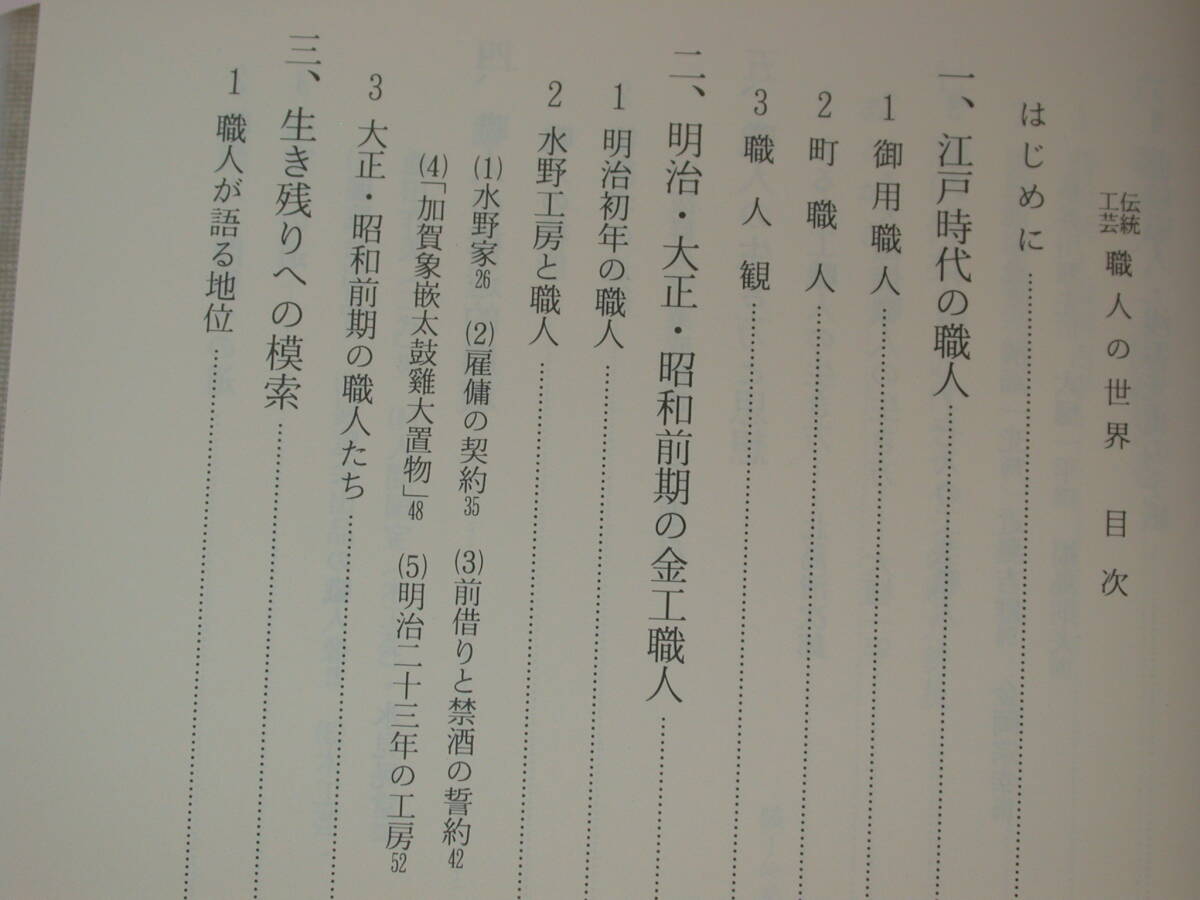 伝統工芸 職人の世界 目次
はじめに……………………
一、江戸時代の職人……………………
1 御用職人……………………
2 町職人……………………
3 職人観……………………
二、明治・大正・昭和前期の金工職人……………………
1 明治初年の職人……………………
2 水野工房と職人……………………
(1)水野家26 (2)雇傭の契約35 (3)前借りと禁酒の誓約42
(4)「加賀象嵌太鼓雞大置物」48 (5)明治二十三年の工房52
3 大正・昭和前期の職人たち……………………
三、生き残りへの模索……………………
1 職人が語る地位……………………